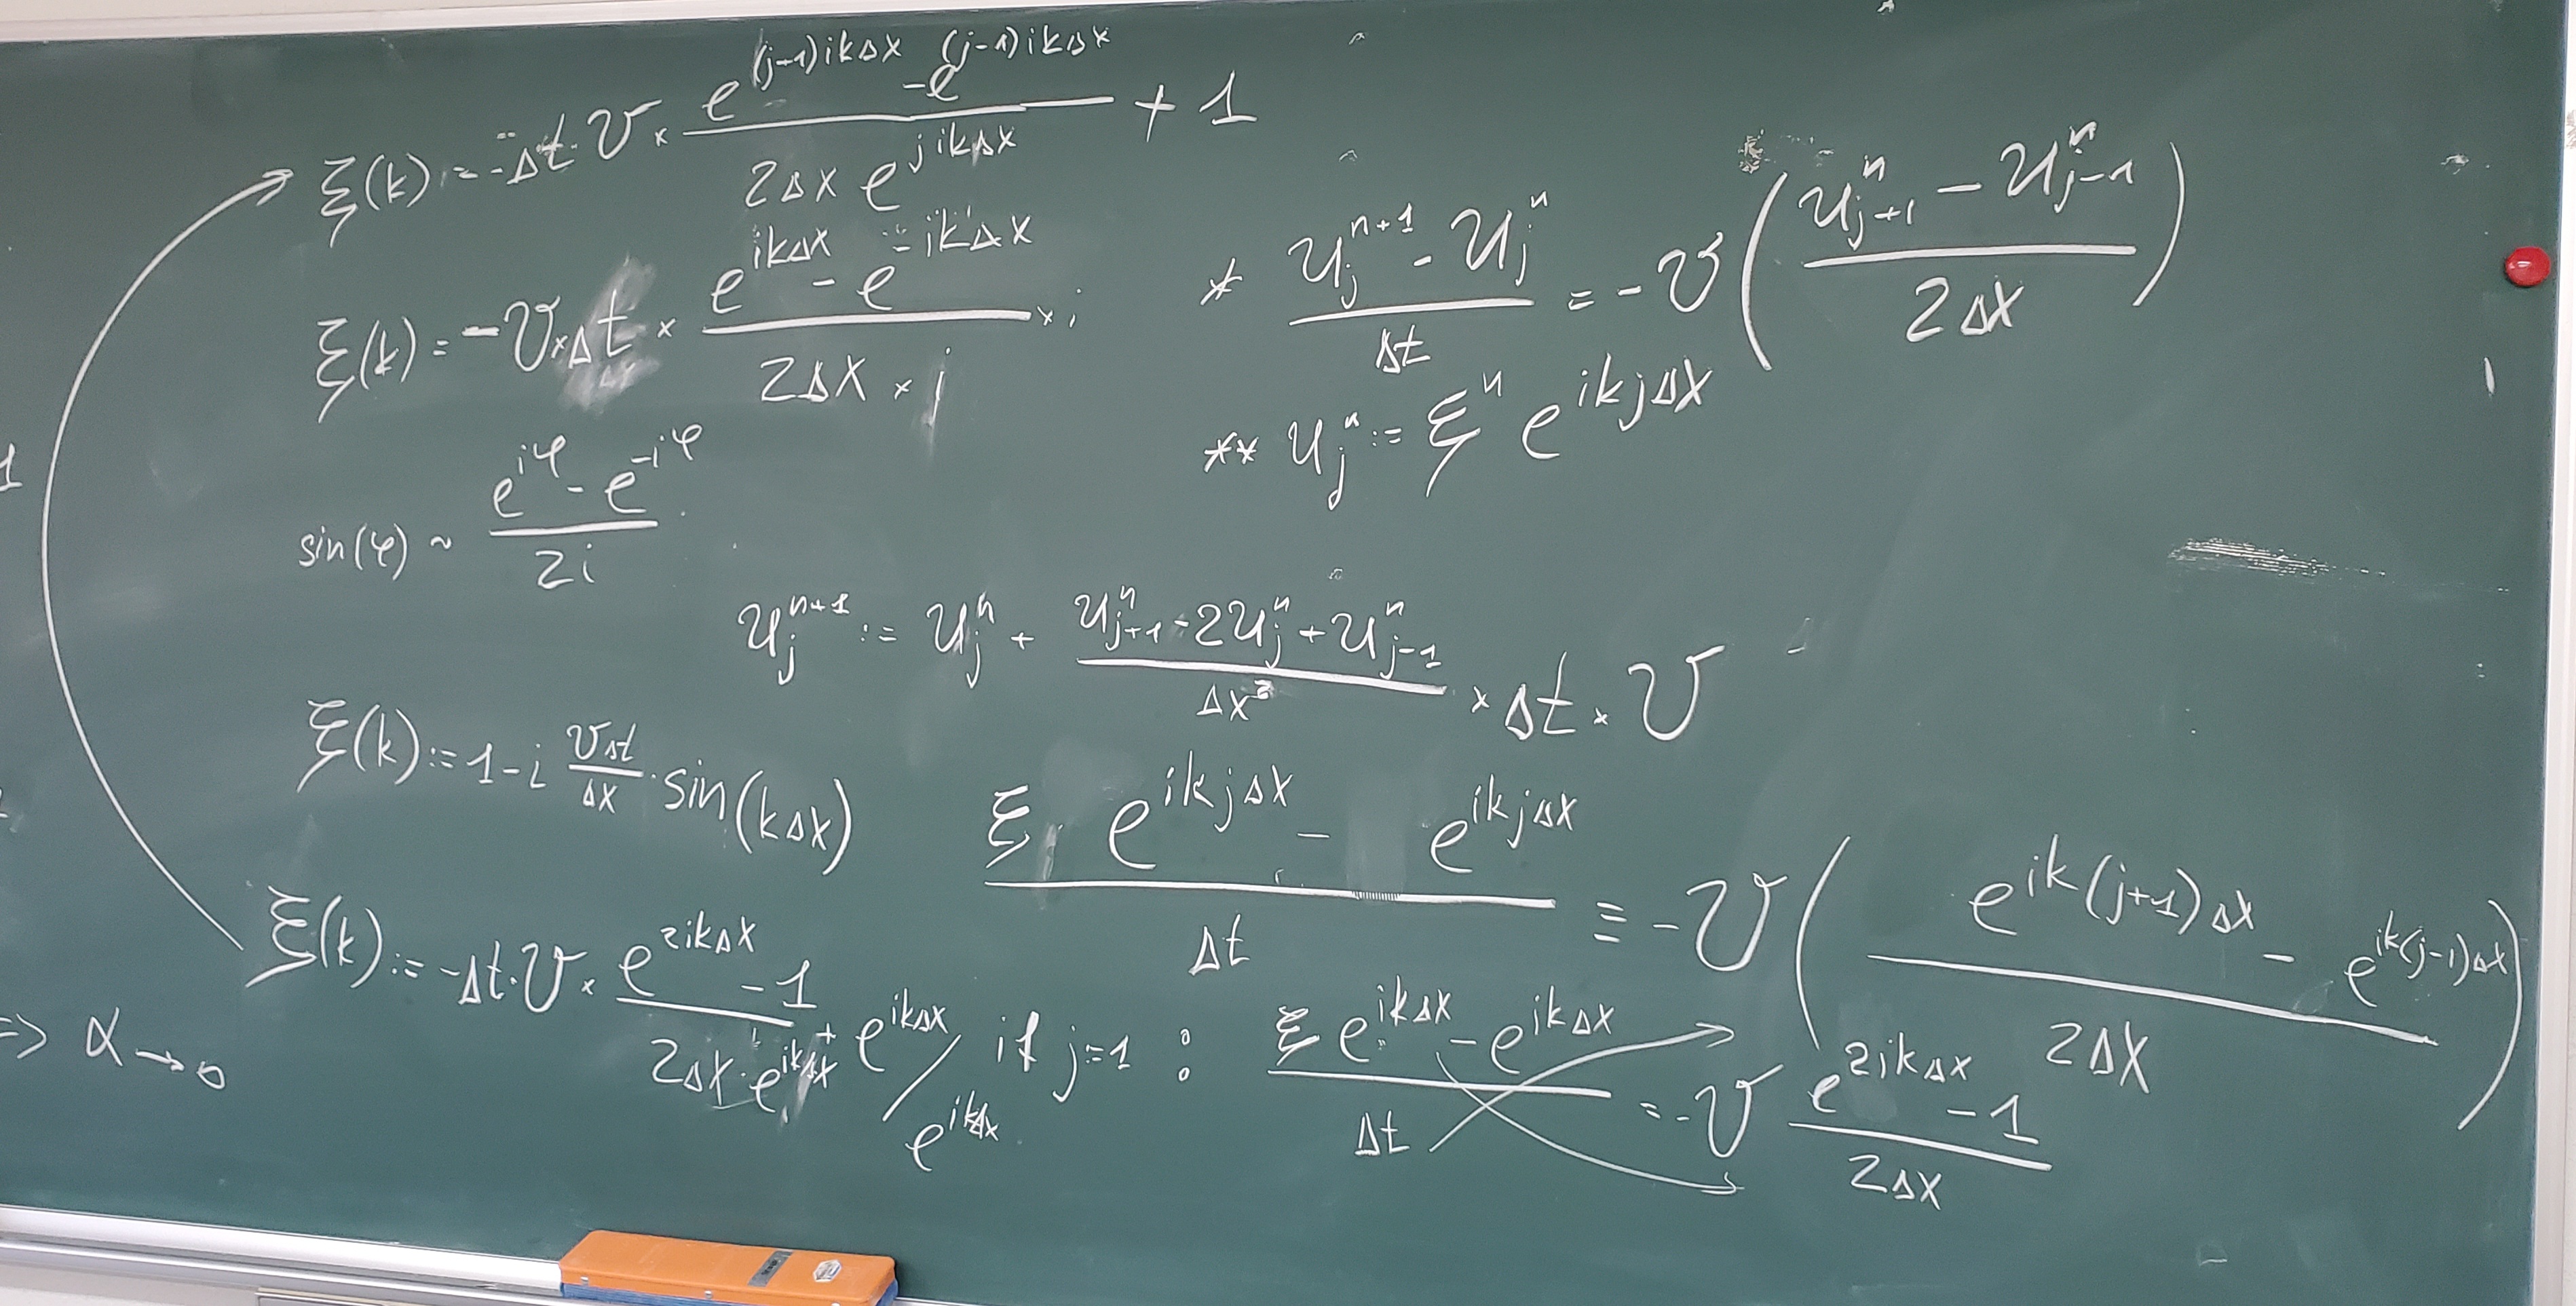 ξ(k) := -Δt · v × (e^{(j+1)ikΔx} - e^{(j-1)ikΔx}) / (2Δx e^{jikΔx}) + 1
ξ(k) = -v × Δt × (e^{ikΔx} - e^{-ikΔx}) / (2Δx × i) × i
sin(φ) ~ (e^{iφ} - e^{-iφ}) / 2i
* (u_j^{n+1} - u_j^n) / Δt = -v ((u_{j+1}^n - u_{j-1}^n) / 2Δx)
** u_j^n := ξ^n e^{ikjΔx}
u_j^{n+1} := u_j^n + (u_{j+1}^n - 2u_j^n + u_{j-1}^n) / Δx² × Δt × v
ξ(k) := 1 - i (vΔt / Δx) · sin(kΔx)
(ξ e^{ikjΔx} - e^{ikjΔx}) / Δt ≡ -v ((e^{ik(j+1)Δx} - e^{ik(j-1)Δx}) / 2Δx)
ξ(k) := -Δt · v × (e^{2ikΔx} - 1) / (2Δx · e^{ikΔx}) + e^{ikΔx} / e^{ikΔx}
if j=1 : (ξ e^{ikΔx} - e^{ikΔx}) / Δt = -v (e^{2ikΔx} - 1) / 2Δx
=> α → 0
1